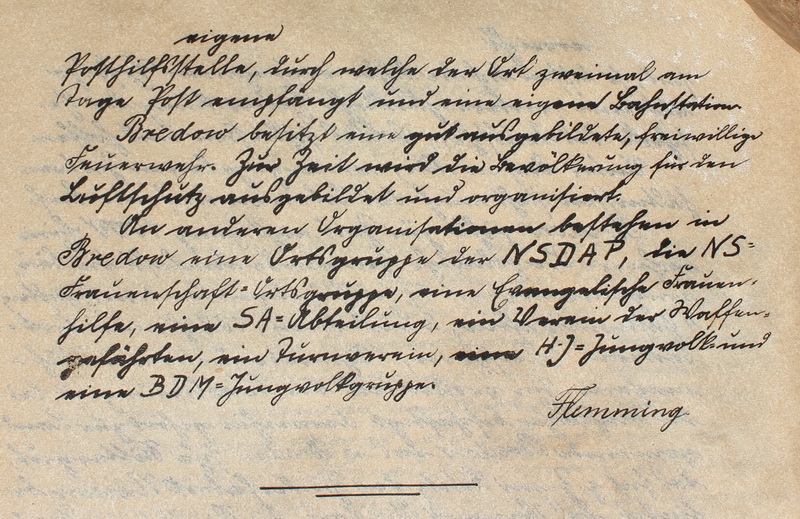 eigene
Posthilfsstelle, durch welche der Ort zweimal am
Tage Post empfängt und eine eigene Bahnstation.
Bredow besitzt eine gut ausgebildete, freiwillige
Feuerwehr. Zur Zeit wird die Bevölkerung für den
Luftschutz ausgebildet und organisiert.
An anderen Organisationen bestehen in
Bredow eine Ortsgruppe der NSDAP, die NS=
Frauenschaft=Ortsgruppe, eine Evangelische Frauen-
hilfe, eine SA=Abteilung, ein Verein der Waffen-
gefährten, ein Turnverein, eine H.J=Jungvolk und
eine BDM=Jungvolkgruppe.
Flemming